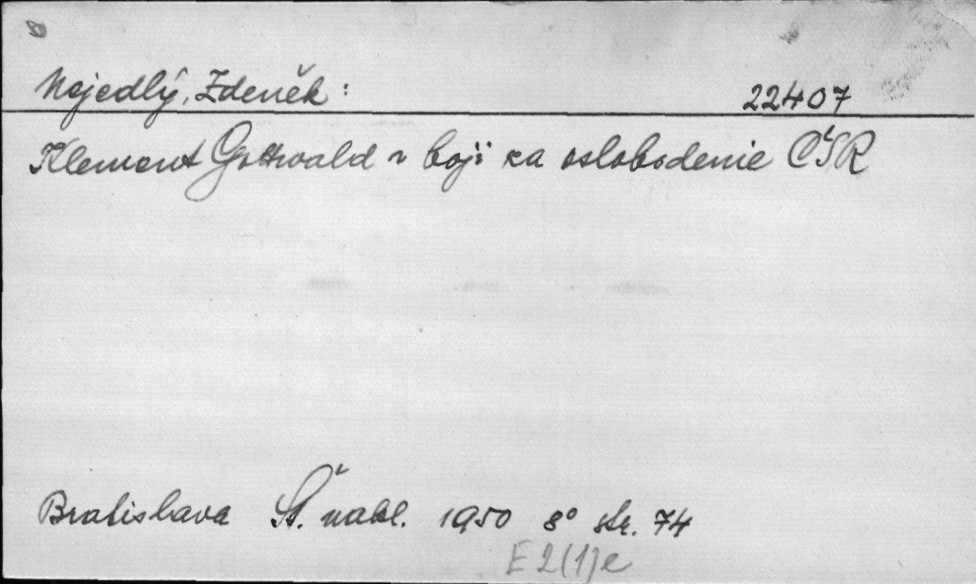 Nejedlý, Zdeněk: 22407
Klement Gottwald v boji za oslobodenie ČSR
Bratislava Št. nakl. 1950 8° str. 74
E2(1)e